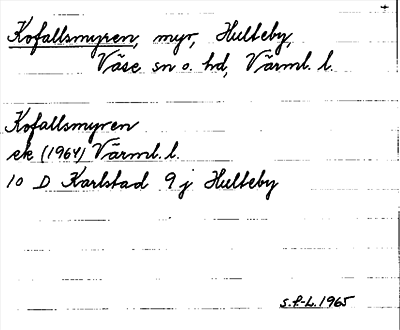 Kofallsmyren, myr, Hulteby,
Väse sn o. hd, Värml. l.
Kofallsmyren
ek (1964) Värml. l.
10 D Karlstad 9 j Hulteby
S.f-L. 1965